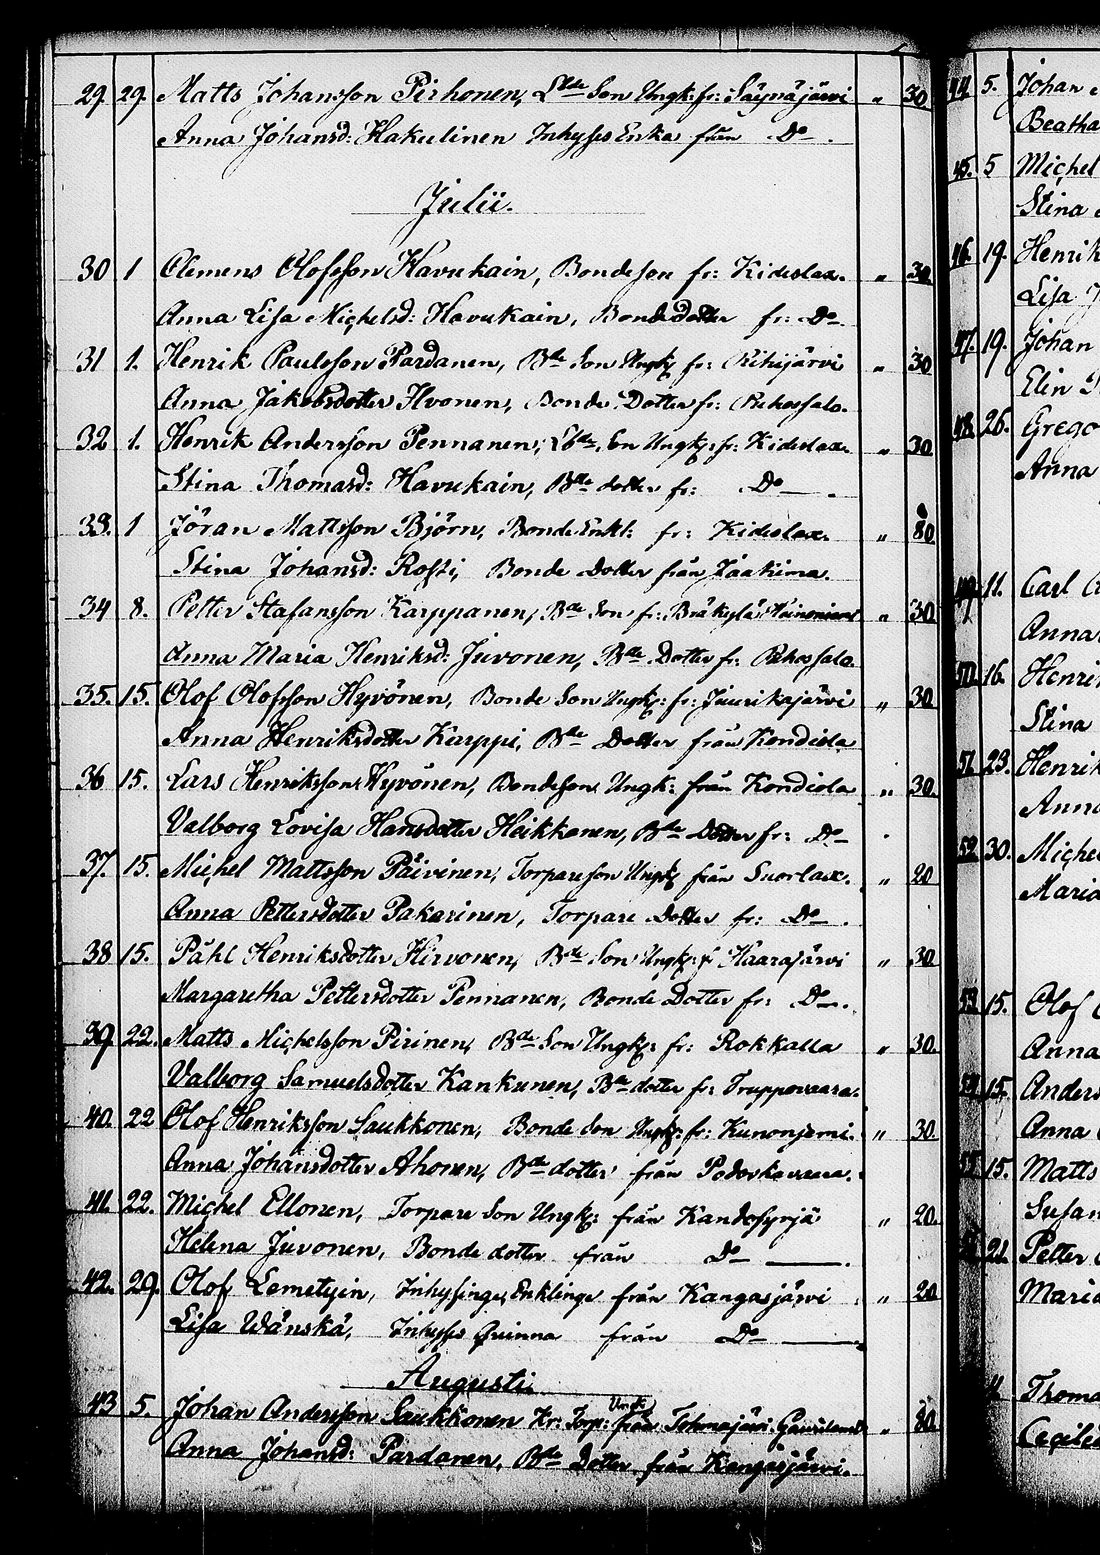 29. 29. Matts Johansson Pirhonen, Lbde Son Ungk: fr: Säynäjärvi „ 30
Anna Johansd: Hakulinen Inhyses Enka från Do .
Julii.
30 1 Clemens Olofsson Havukain, Bondeson fr: Kideslax. „ 30.
Anna Lisa Michelsd: Havukain, Bondedotter fr: Do
31 1. Henrik Paulsson Pardanen, Bde Son Ungk: fr: Riihijärvi „ 30
Anna Jakobsdotter Ihvonen, Bonde Dotter fr: Puhossalo.
32 1. Henrik Andersson Pennanen, Lbde Son Ungk: fr: Kideslax. „ 30
Stina Thomasd: Havukain, Bde dotter fr: Do .
33. 1 Jöran Mattsson Björn, Bonde Enkl: fr: Kideslax. „ 80
Stina Johansd: Rosti, Bonde Dotter från Jaakima.
34 8. Petter Stafansson Karppanen, Bde Son fr: Bräkylä „ 30
Anna Maria Henriksd: Juvonen, Bde Dotter fr: Puhossalo
35. 15. Olof Olofsson Hyvönen, Bonde Son Ungk: fr: Juurikajärvi „ 30
Anna Henriksdotter Karppi, Bde Dotter från Kondiola
36 15. Lars Henriksson Hyvönen, Bondeson Ungk: från Kondiola „ 30.
Valborg Lovisa Hansdotter Heikkonen, Bde Dotter fr: Do
37. 15. Michel Mattsson Päivinen, Torpareson Ungk: från Suorlax. „ 20
Anna Pettersdotter Pakarinen, Torpare Dotter fr: Do .
38 15. Påhl Henriksdotter Hirvonen, Bde Son Ungk: f Haarajärvi „ 30
Margaretha Pettersdotter Pennanen, Bonde Dotter fr: Do .
39 22. Matts Michelsson Pirinen, Bde Son Ungk: fr: Rokkala „ 30.
Valborg Samuelsdotter Kankunen, Bde dotter fr: Truppovaara.
40. 22 Olof Henriksson Saukkonen, Bonde Son Ungk: fr: Kunonjemi. „ 30.
Anna Johansdotter Ahonen, Bde dotter från Podorkavaara.
41. 22. Michel Ellonen, Torpare Son Ungk: från Kandosyrjä „ 20.
Helena Juvonen, Bonde dotter från Do .
42. 29. Olof Lemetyin, Inhysinge, Enklinge från Kangasjärvi „ 20
Lisa Wänskä, Inhyses Quinna från Do
Augusti
43 5. Johan Andersson Saukkonen Kr: Torp: från Tohmajärvi „ 80.
Anna Johansd: Pardanen, Bde Dotter från Kangasjärvi.
44. 5. Johan
Beatha
45. 5 Michel
Stina
46. 19. Henrik
Lisa
47. 19. Johan
Elin
48. 26. Grego
Anna
11. Carl
Anna
50. 16. Henri
Stina
51. 23. Henrik
Anna
52. 30. Michel
Maria
53. 15. Olof
Anna
54. 15. Anders
Anna
15. Matts
Susan
21. Petter
Maria
Thoma
Cecilia